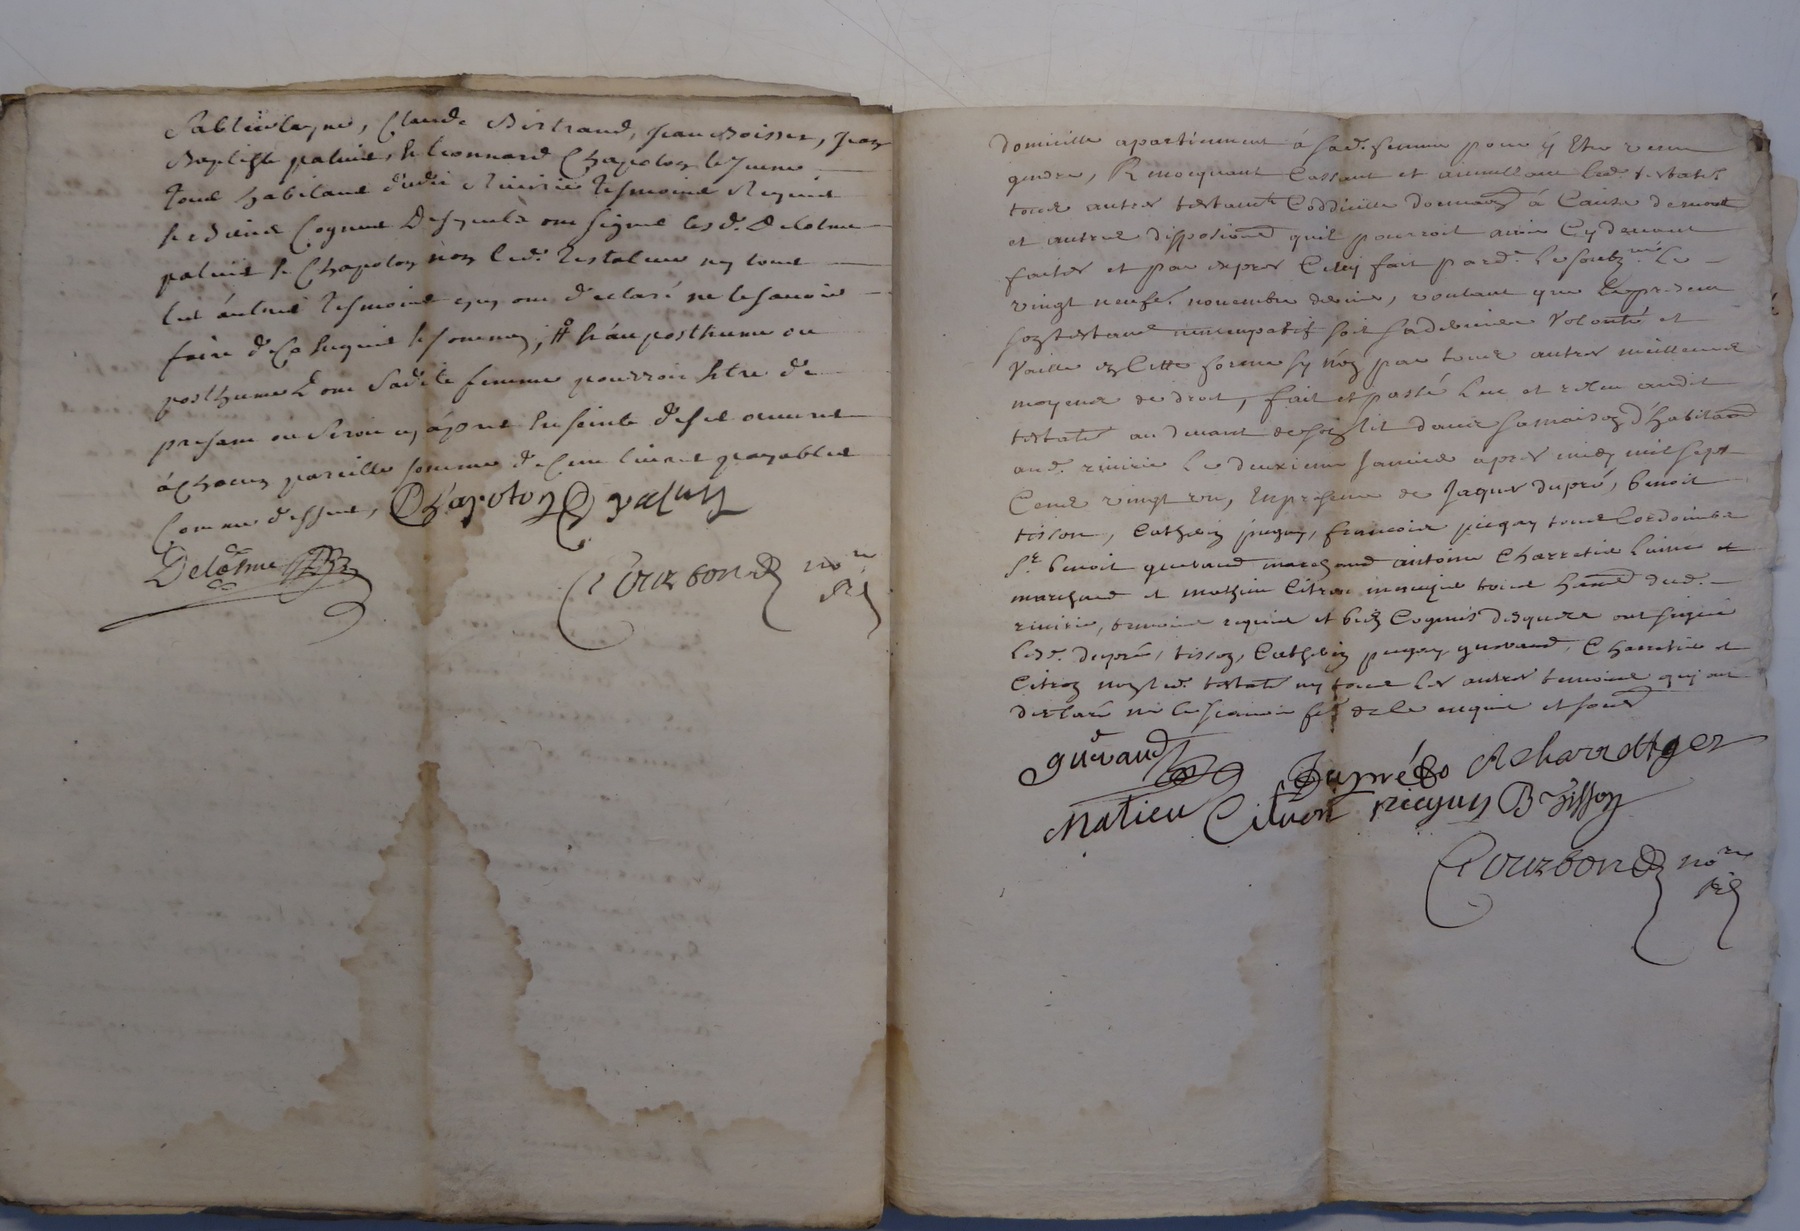 Claude Bertrand, Jean Boisser, Jean
Baptiste palme, & Leonnard Chapoton le Jeune
tous habitans dudit Riuirie tesmoins Requis
& bien Cognus Desquels ont signé lesd. Delolme
palme & Chapoton non led. Testateur ny tous
les autres tesmoins quy ont declaré ne le sauoir
faire de Ce Enquis & sommez, # & au posthume ou
posthumes dont sadite femme pourroit Estre de
present ou seroit cy apres Enceinte desd.
à Chacun pareille somme de Cent liures payables
Comme dessus, Chapoton palme
Delolme
Courbon no.re
Rl
domicille apartiennent à sad. femme pour y Estre
Reuocquant Cassant et annullant
tous autres testamts Coddicilles donnaons à Cause de mort
et autres dispositions quil pourroit auoir Cy deuant
faites et par expres Celuy fait pard. Le soubz.né Le
vingt neufe. nouembre dernier, voulant que Le present
son testament nuncupatif soit sa derniere Volonté et
Vaille en Cette forme sy non par tous autres meilleurs
moyens de droit, fait et passé Leu et releu audit
testatr au deuant de son lit dans sa maison d'habitaon
aud. riuirie Le deuxieme Januier apres midy mil sept
Cens vingt un, En presence de Jaques dupré, benoit
tisson, Catherin piegay, francois piegay tous Cordoniers
Sr. benoit gueraud marchand antoine Charretier Laine
marchand et mathieu Citron tous dud.
riuirie, temoins requis et bien Cognus desquels ont signé
Lesd. dupré, tisson, Catherin piegay, gueraud, Charretier et
Citron non led. testatr ny tous Les autres temoins quy ont
declaré ne le scauoir fe. de Ce enquis et somés
gueraud Dupré A charretyer
Matieu Citron piegay B tisson
Courbon no.re
Rl